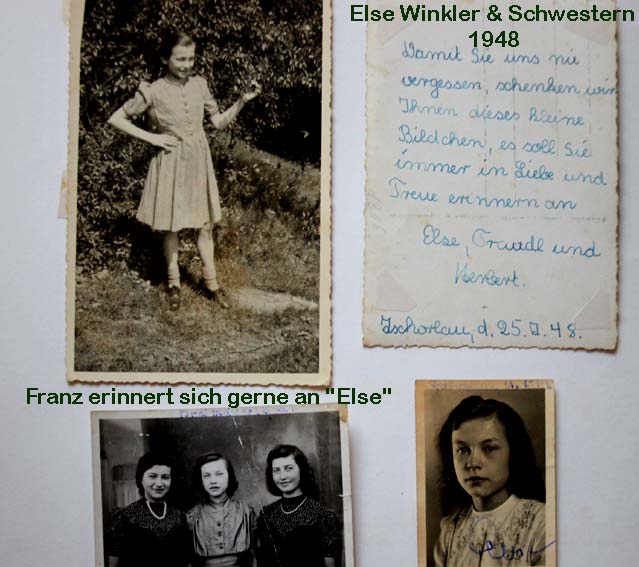 Else Winkler & Schwestern
1948
Damit Sie uns nie
vergessen, schenken wir
Ihnen dieses kleine
Bildchen, es soll Sie
immer in Liebe und
Treue erinnern an
Else, Traudl und
Herbert.
Zschorlau, d. 25.7.48.
Franz erinnert sich gerne an "Else"